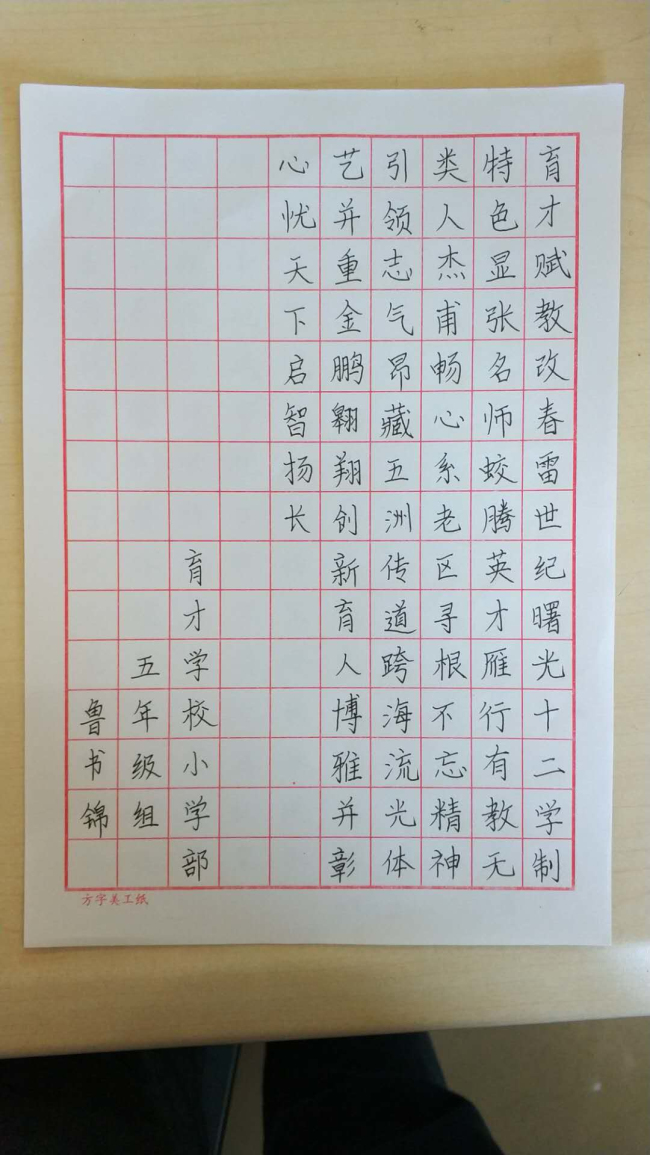 育才赋教改春雷世纪曙光十二学制
特色显张名师蛟腾英才雁行有教无
类人杰甫畅心系老区寻根不忘精神
引领志气昂藏五洲传道跨海流光体
艺并重金鹏翱翔创新育人博雅并彰
心忧天下启智扬长
育才学校小学部
五年级组
鲁书锦
方字美工纸